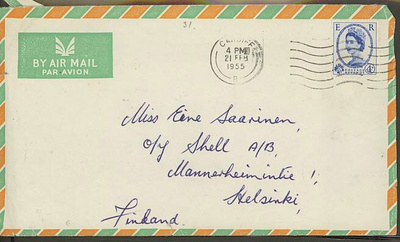 31.
BY AIR MAIL
PAR AVION
4 PM
21 FEB
1955
E R
Miss Eeve Saarinen,
o/y Shell A/B,
Mannerheimintie 1,
Helsinki,
Finland.